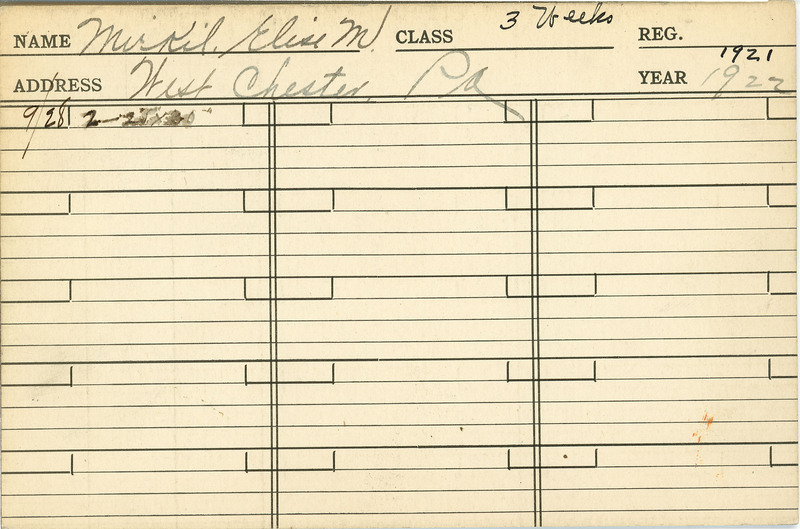 NAME Mirkil, Elise M. CLASS 3 Weeks REG.
1921
ADDRESS West Chester, Pa YEAR 1922
9/28 2—25x30